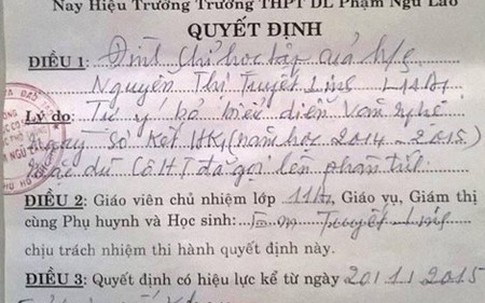 Nay Hiệu Trưởng Trường THPT DL Phạm Ngũ Lão
QUYẾT ĐỊNH
ĐIỀU 1: Đình chỉ học tập của h/s
Nguyễn Thị Tuyết Linh L11A1
Lý do: Tự ý bỏ biểu diễn Văn nghệ
ngày Sơ Kết HK1 (năm học 2014 - 2015)
Mặc dù Cô HT đã gọi lên phân tích.
ĐIỀU 2: Giáo viên chủ nhiệm lớp 11A1, Giáo vụ, Giám thị
cùng Phụ huynh và Học sinh: Em Tuyết Linh
chịu trách nhiệm thi hành quyết định này.
ĐIỀU 3: Quyết định có hiệu lực kể từ ngày 20/1/2015